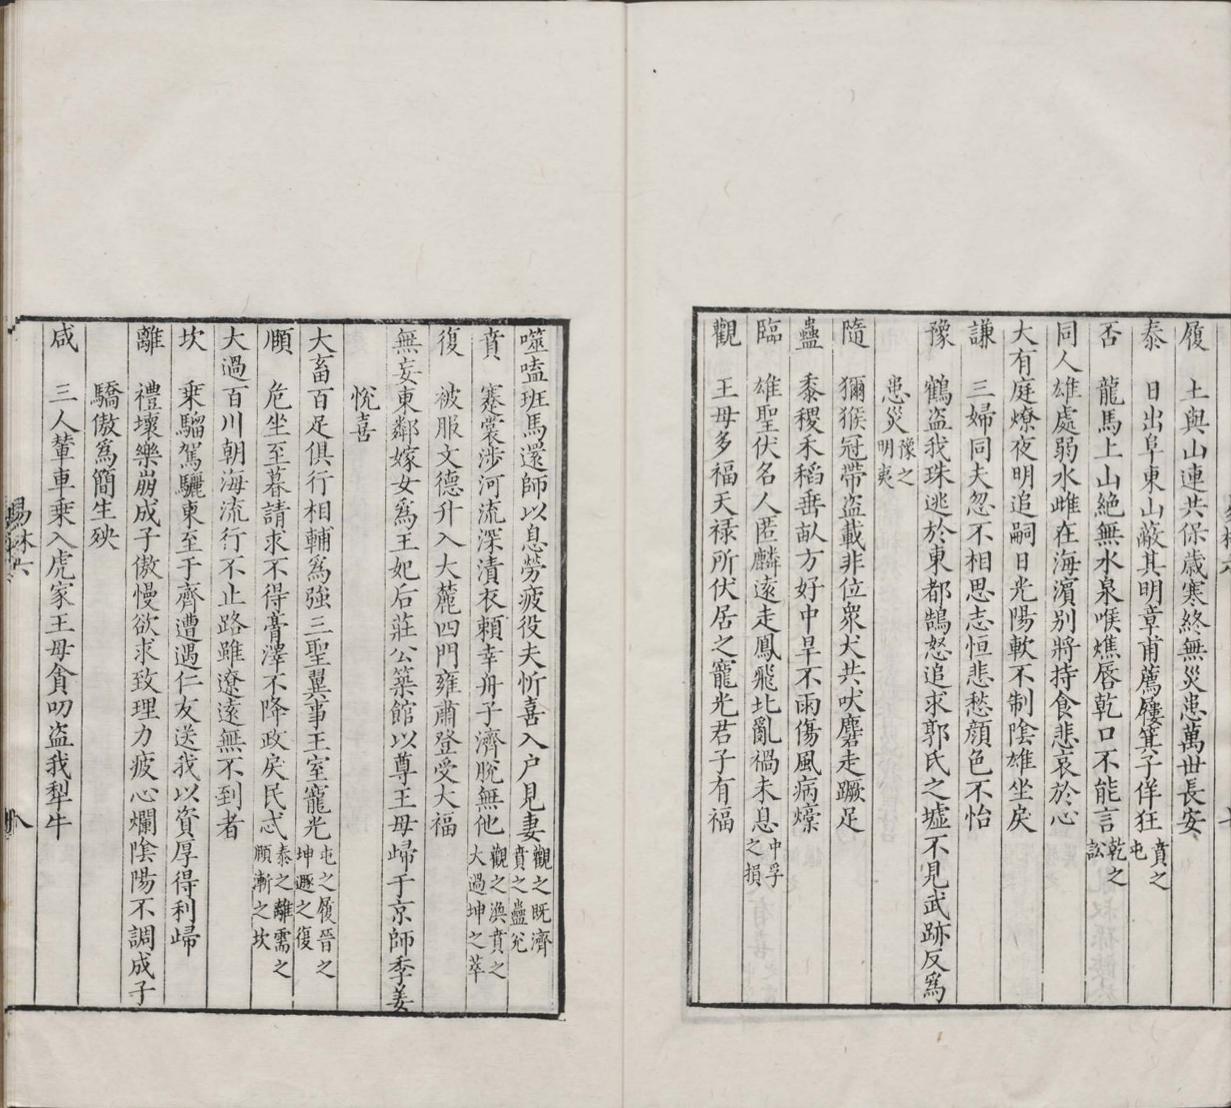 履　土與山連共保歲寒終無災患萬世長安
泰　日出阜東山蔽其明章甫薦屨箕子佯狂賁之屯
否　龍馬上山絶無水泉喉燋唇乾口不能言乾之訟
同人雄處弱水雌在海濱别將持食悲哀於心
大有庭燎夜明追嗣日光陽軟不制陰雄坐戾
謙　三婦同夫忽不相思志恒悲愁顔色不怡
豫　鶴盗我珠逃於東都鵠怒追求郭氏之墟不見武跡反爲
患災豫之明夷
隨　獮猴冠帶盗載非位衆犬共吠麏走蹶足
蠱　黍稷禾稻垂畝方好中旱不雨傷風病㷟
臨　雄聖伏名人匿麟遠走鳳飛北亂禍未息中孚之損
觀　王母多福天禄所伏居之寵光君子有福
噬嗑班馬還師以息勞疲役夫忻喜入户見妻觀之既濟賁之蠱兊
賁　褰裳涉河流深漬衣頼幸舟子濟脫無他觀之渙賁之大過坤之萃
復　被服文德升入大麓四門雍肅登受大福
無妄東鄰嫁女爲王妃后莊公築館以尊王母歸于京師季姜
悅喜
大畜百足俱行相輔爲強三聖翼事王室寵光屯之履晉之坤遯之復
頤　危坐至暮請求不得膏澤不降政戾民忒泰之離需之頤漸之坎
大過百川朝海流行不止路雖遼遠無不到者
坎　乗騮駕驪東至于齊遭遇仁友送我以資厚得利歸
離　禮壞樂崩成子傲慢欲求致理力疲心爛陰陽不調成子
驕傲爲簡生殃
咸　三人輦車乗入虎家王母貪叨盗我犁牛
易林六
八